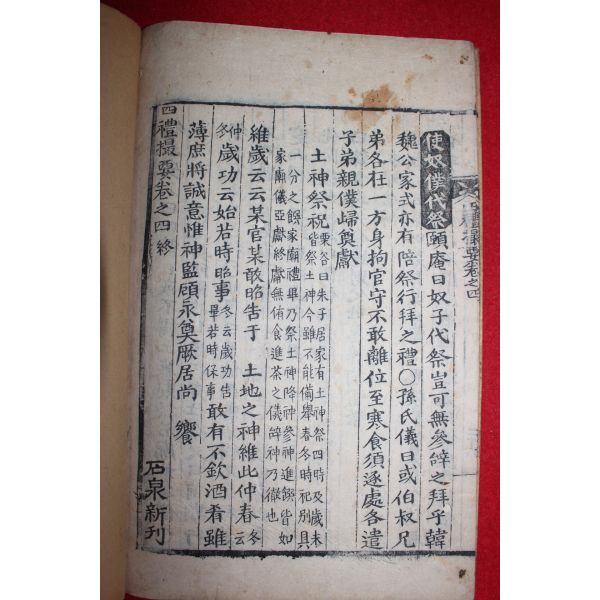 四禮撮要卷之四
使奴僕代祭頤庵曰奴子代祭豈可無參辭之拜乎韓
魏公家式亦有陪祭行拜之禮〇孫氏儀曰或伯叔兄
弟各在一方身拘官守不敢離位至寒食須逐處各遣
子弟親僕歸奠獻
土神祭祝栗谷曰朱子居家有土神祭四時及歲末
皆祭土神今雖不能備舉春冬時祀別具
一分之饌家廟禮畢乃祭土神降神參神進饌皆如
家廟儀亞獻終獻無侑食進茶之儀辭神乃徹也
維歲云云某官某敢昭告于 土地之神維此仲春冬云
仲冬歲功云始若時昭事冬云歲功告畢若時保事敢有不欽酒肴雖
薄庶將誠意惟神監顧永奠厥居尚 饗
四禮撮要卷之四終
石泉新刊